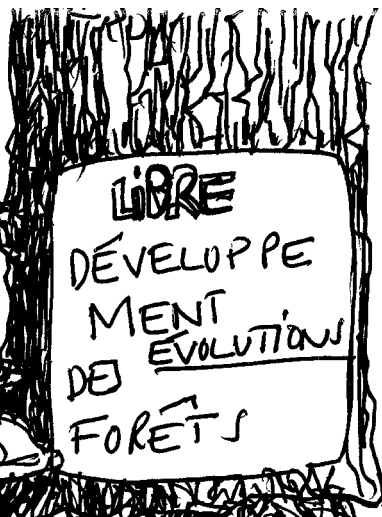 LIBRE
DÉVELOPPE
MENT
ÉVOLUTIONS
DES
FORÊTS